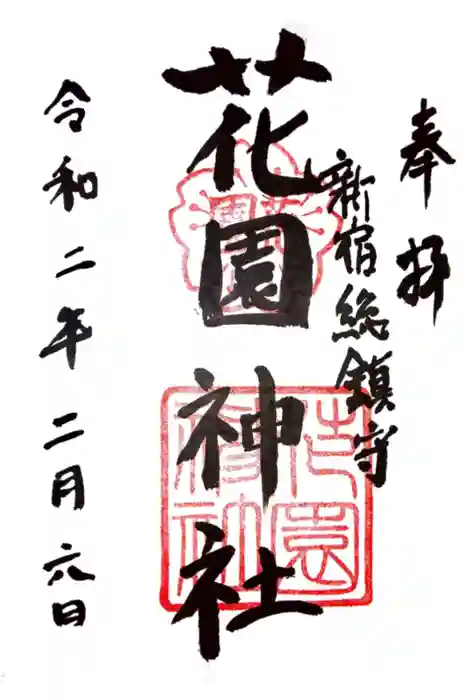 奉拝
新宿総鎮守
花園神社
令和二年二月六日
花園
花園神社